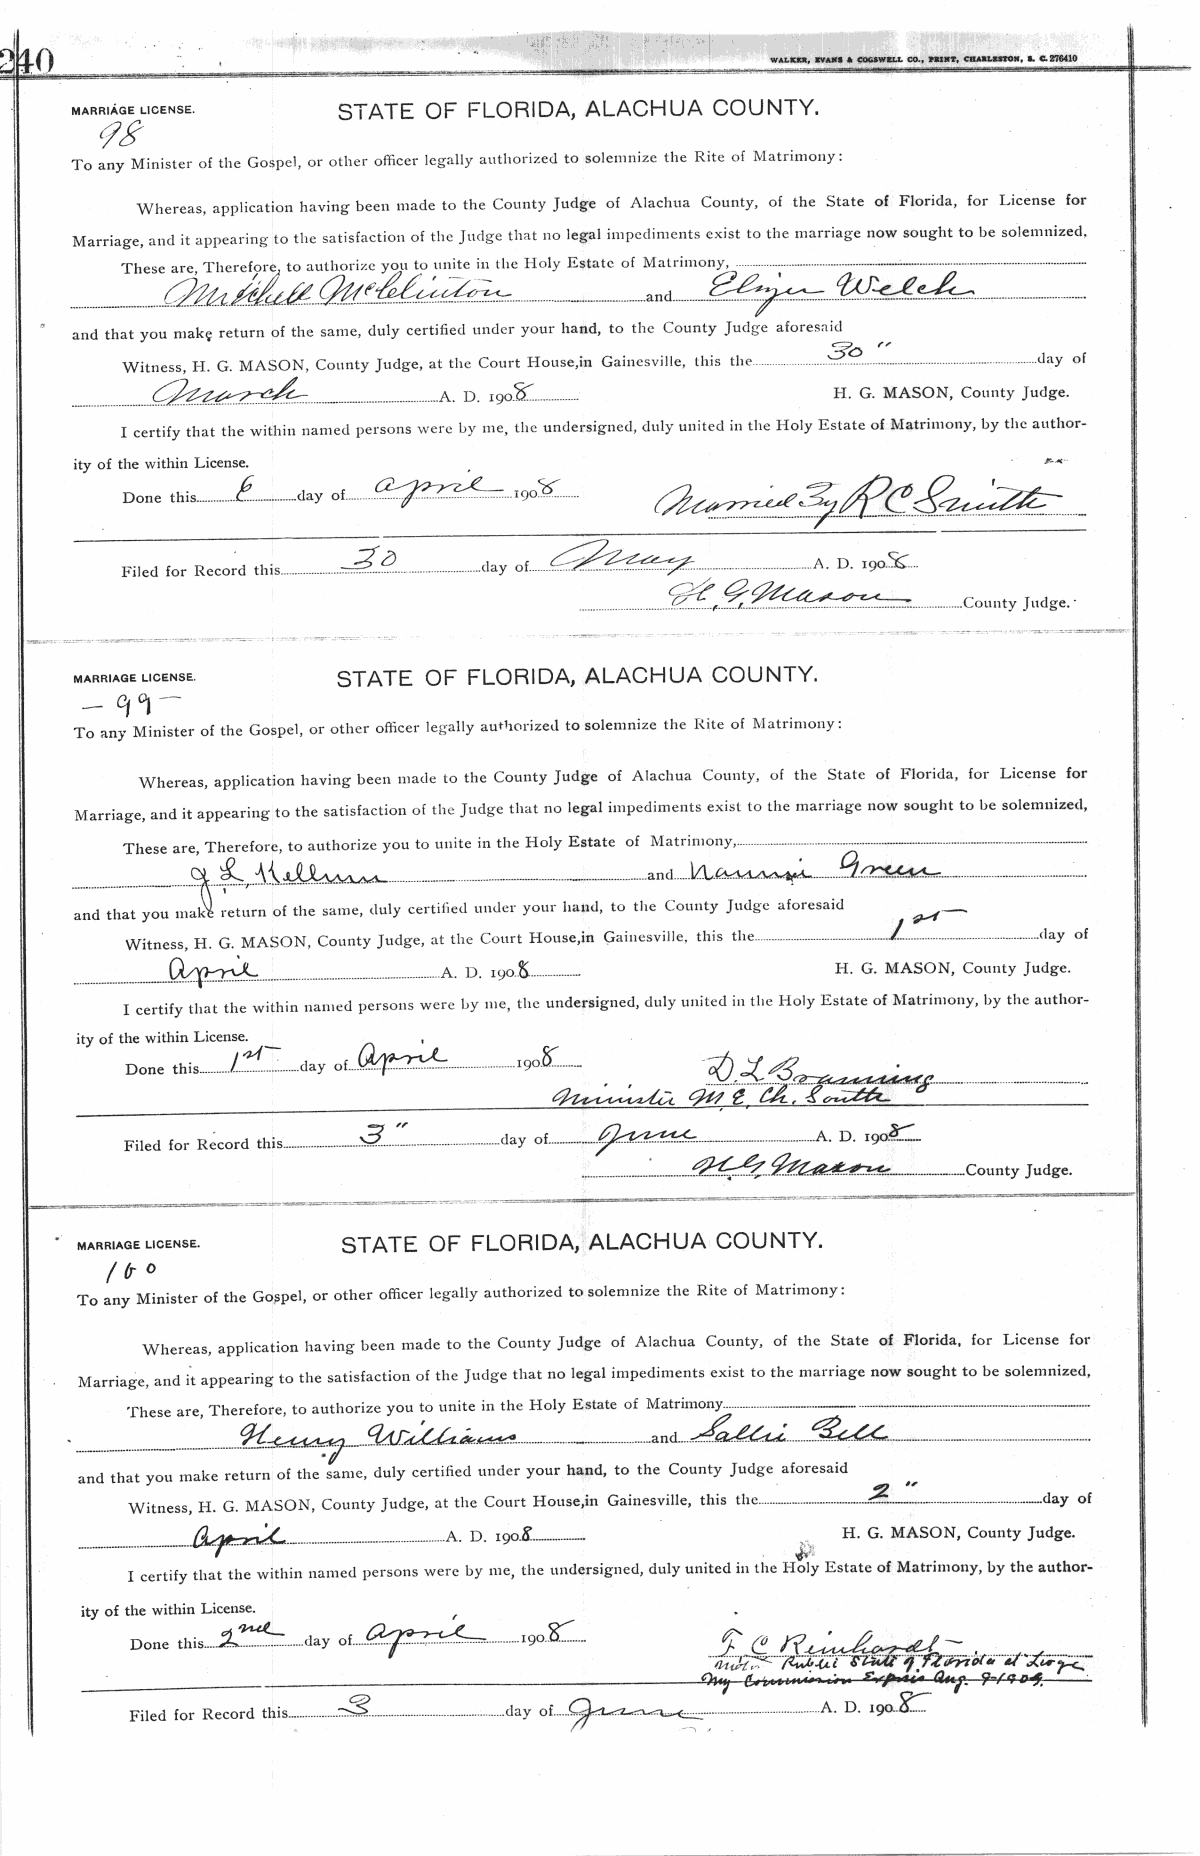 240
WALKER, EVANS & COGSWELL CO., PRINT, CHARLESTON, S. C. 276410
MARRIAGE LICENSE. STATE OF FLORIDA, ALACHUA COUNTY.
98
To any Minister of the Gospel, or other officer legally authorized to solemnize the Rite of Matrimony:
Whereas, application having been made to the County Judge of Alachua County, of the State of Florida, for License for
Marriage, and it appearing to the satisfaction of the Judge that no legal impediments exist to the marriage now sought to be solemnized,
These are, Therefore, to authorize you to unite in the Holy Estate of Matrimony,
Mitchell McClinton and Welch
and that you make return of the same, duly certified under your hand, to the County Judge aforesaid
Witness, H. G. MASON, County Judge, at the Court House, in Gainesville, this the 30" day of
March A. D. 1908 H. G. MASON, County Judge.
I certify that the within named persons were by me, the undersigned, duly united in the Holy Estate of Matrimony, by the author-
ity of the within License.
Done this 6 day of April 1908 Married By R C Smith
Filed for Record this 30 day of May A. D. 1908
H. G. Mason County Judge.
MARRIAGE LICENSE. STATE OF FLORIDA, ALACHUA COUNTY.
— 99 —
To any Minister of the Gospel, or other officer legally authorized to solemnize the Rite of Matrimony:
Whereas, application having been made to the County Judge of Alachua County, of the State of Florida, for License for
Marriage, and it appearing to the satisfaction of the Judge that no legal impediments exist to the marriage now sought to be solemnized,
These are, Therefore, to authorize you to unite in the Holy Estate of Matrimony,
J. L. Kellum and Nannie Green
and that you make return of the same, duly certified under your hand, to the County Judge aforesaid
Witness, H. G. MASON, County Judge, at the Court House, in Gainesville, this the 1st day of
April A. D. 1908 H. G. MASON, County Judge.
I certify that the within named persons were by me, the undersigned, duly united in the Holy Estate of Matrimony, by the author-
ity of the within License.
Done this 1st day of April 1908 D. L. Branning
Minister M. E. Ch. South
Filed for Record this 3" day of June A. D. 1908
H. G. Mason County Judge.
MARRIAGE LICENSE. STATE OF FLORIDA, ALACHUA COUNTY.
100
To any Minister of the Gospel, or other officer legally authorized to solemnize the Rite of Matrimony:
Whereas, application having been made to the County Judge of Alachua County, of the State of Florida, for License for
Marriage, and it appearing to the satisfaction of the Judge that no legal impediments exist to the marriage now sought to be solemnized,
These are, Therefore, to authorize you to unite in the Holy Estate of Matrimony
Henry Williams and Sallie Bell
and that you make return of the same, duly certified under your hand, to the County Judge aforesaid
Witness, H. G. MASON, County Judge, at the Court House, in Gainesville, this the 2" day of
April A. D. 1908 H. G. MASON, County Judge.
I certify that the within named persons were by me, the undersigned, duly united in the Holy Estate of Matrimony, by the author-
ity of the within License.
Done this 2nd day of April 1908 F C Reinhardt
Public State of Florida at Large
My Commission Expires Aug. 9 1909.
Filed for Record this 3 day of June A. D. 1908